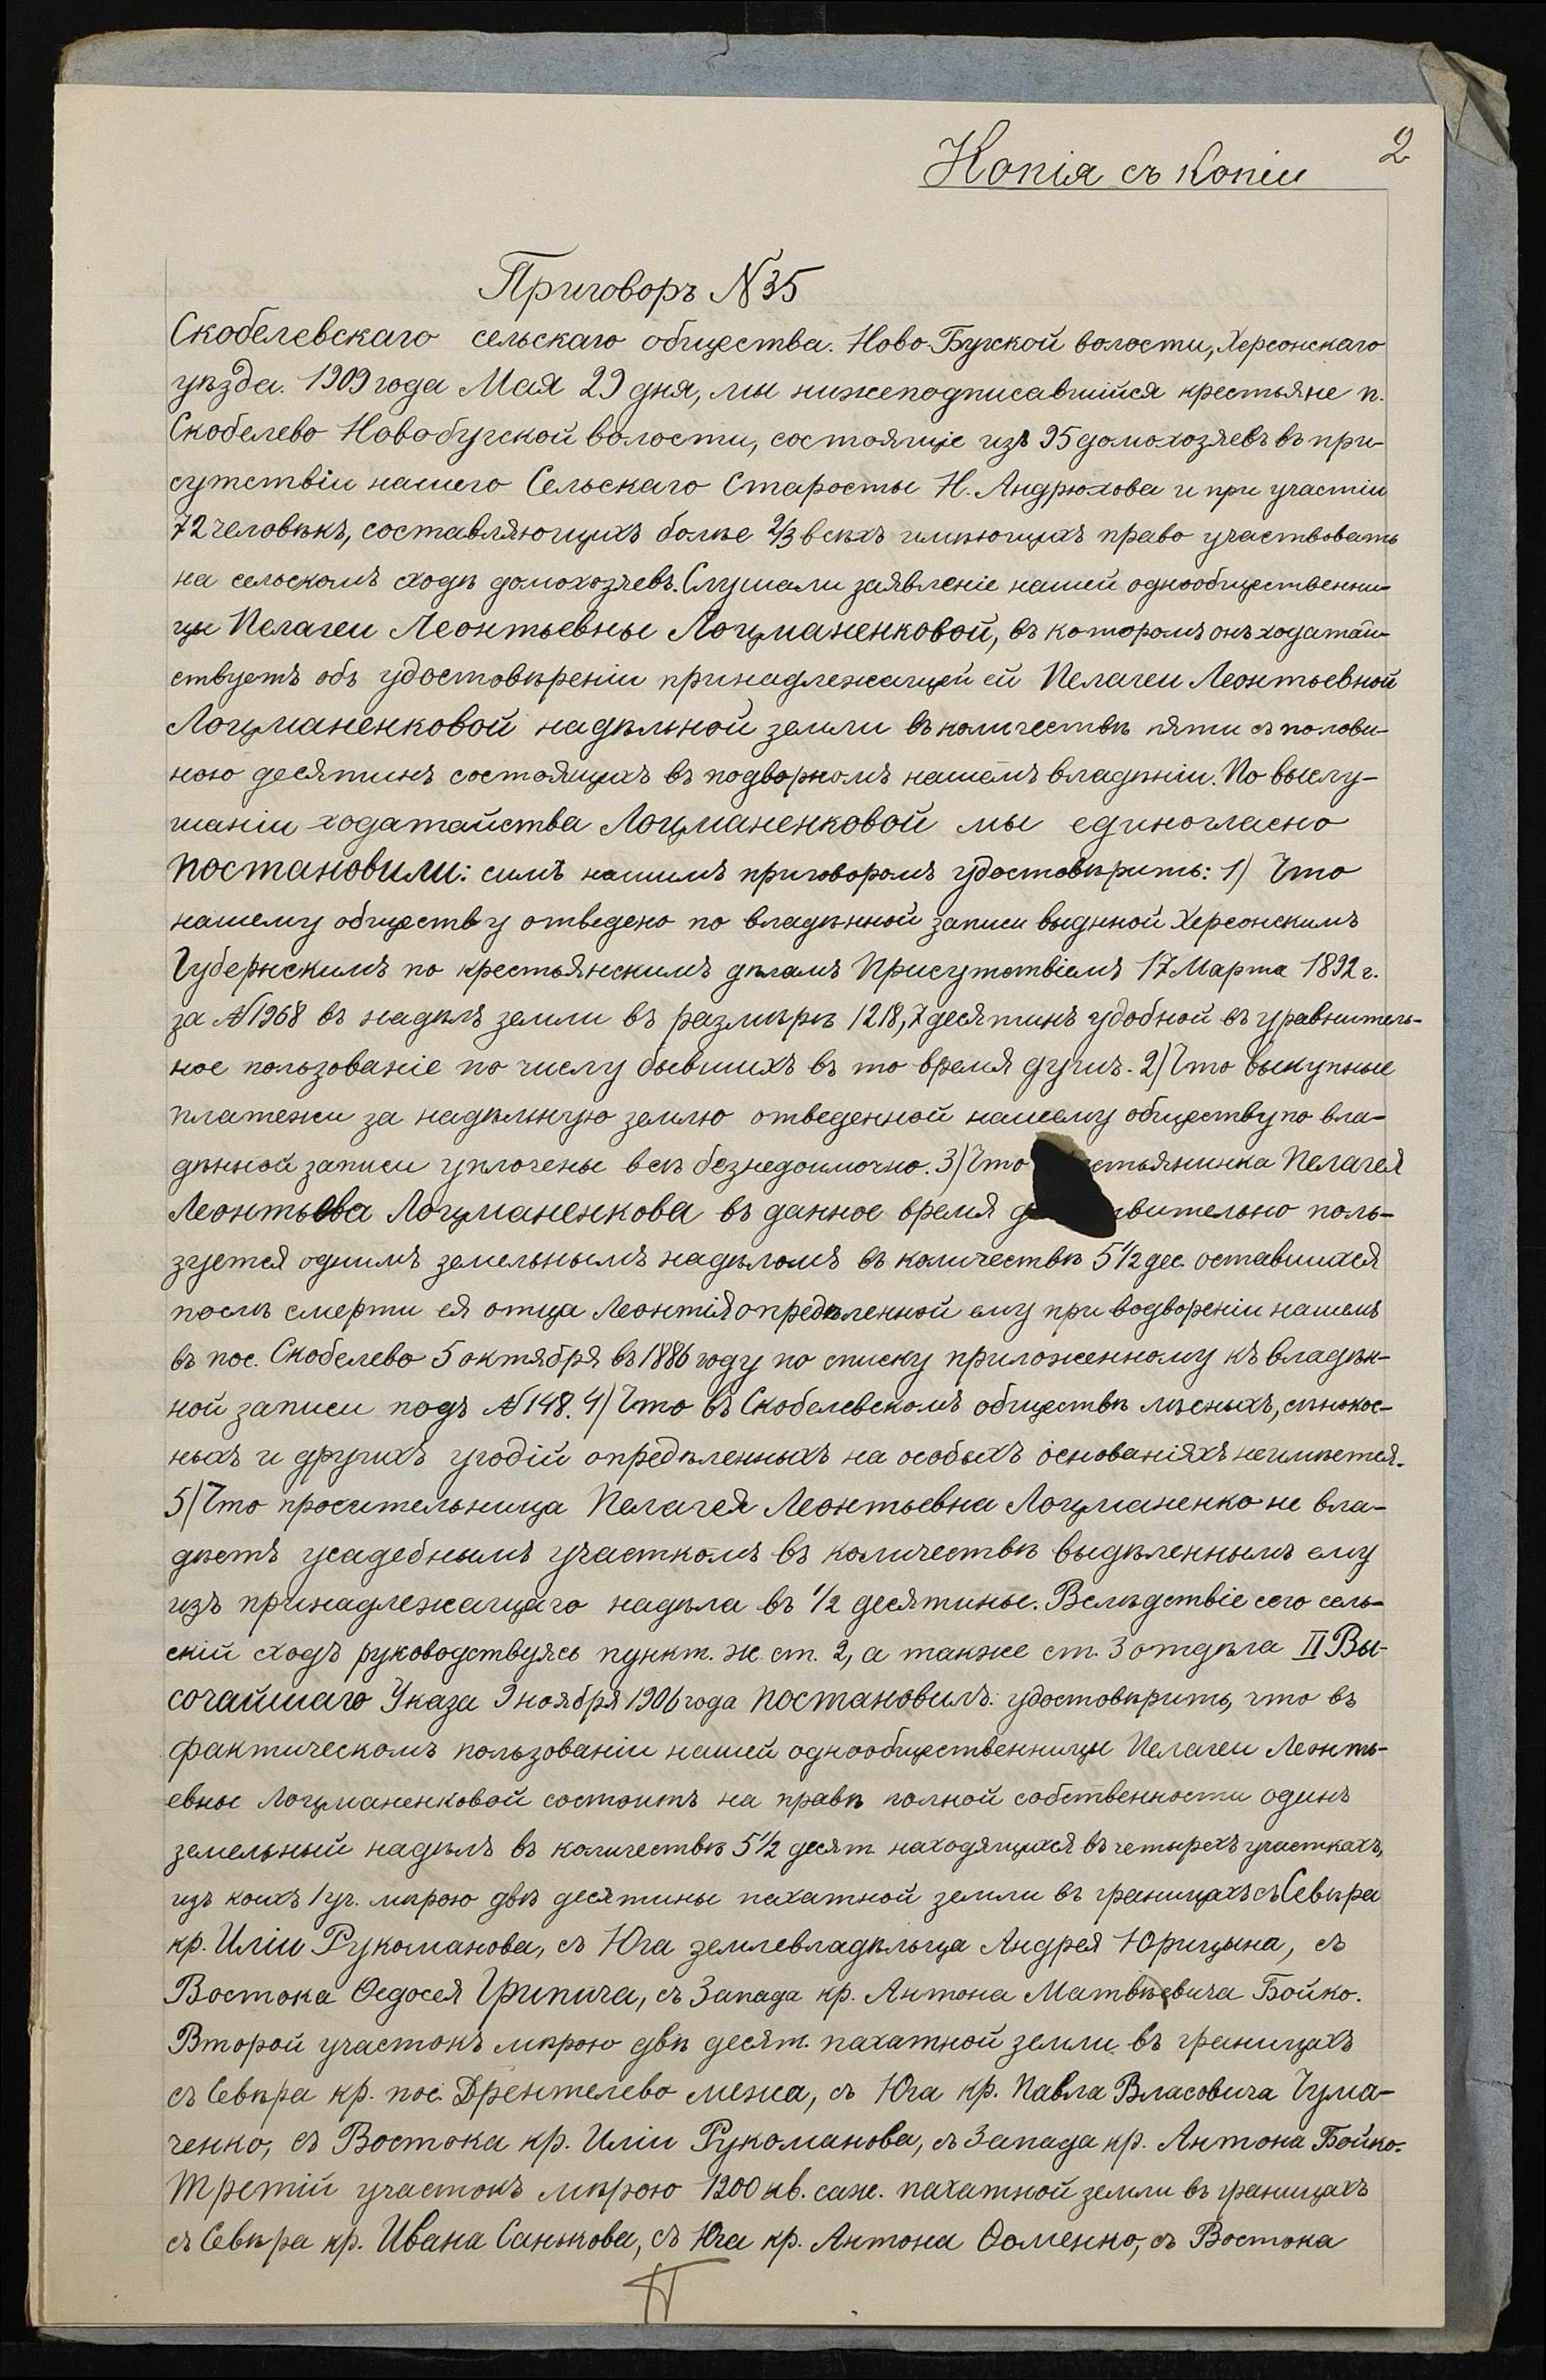 2
Копія съ Копіи
Приговоръ №35
Скобелевскаго сельскаго общества. Ново-Бугской волости, Херсонскаго
уѣзда. 1909 года Мая 29 дня, мы нижеподписавшійся крестьяне п.
Скобелево Новобугской волости, состоящіе изъ 95 домохозяевъ въ при-
сутствіи нашего Сельскаго Старосты Н. Андрюхова и при участіи
72 человѣкъ, составляющихъ болѣе 2/3 всѣхъ имѣющихъ право участвовать
на сельскомъ сходѣ домохозяевъ. Слушали заявленіе нашей однообщественни-
цы Пелагеи Леонтьевны Лоцманенковой, въ которомъ онъ ходатай-
ствуетъ объ удостовѣреніи принадлежащей ей Пелагеи Леонтьевной
Лоцманенковой надѣльной земли въ количествѣ пяти съ полови-
ною десятинъ состоящихъ въ подворномъ нашемъ владѣніи. По выслу-
шаніи ходатайства Лоцманенковой мы единогласно
постановили: симъ нашимъ приговоромъ удостовѣрить: 1) Что
нашему обществу отведено по владѣнной записи выднной Херсонскимъ
Губернскимъ по крестьянскимъ дѣламъ Присутствіемъ 17 Марта 1892 г.
за №1968 въ надѣлъ земли въ размѣрѣ 1218,7 десятинъ удобной въ уравнитель-
ное пользованіе по числу бывшихъ въ то время душъ. 2) Что выкупные
платежи за надѣльную землю отведенной нашему обществу по вла-
дѣнной записи уплочены всѣ безнедоимочно. 3) Что стьянинка Пелагея
Леонтьева Лоцманенкова въ данное время д вительно поль-
зуется однимъ земельнымъ надѣломъ въ количествѣ 5 1/2 дес. оставшихся
послѣ смерти ея отца Леонтія опредѣленной ему при водвореніи нашемъ
въ пос. Скобелево 5 октября въ 1886 году по списку приложенному къ владѣн-
ной записи подъ №148. 4) Что въ Скобелевскомъ обществѣ лѣсныхъ, сѣнокос-
ныхъ и другихъ угодій опредѣленныхъ на особыхъ основаніяхъ неимѣется.
5) Что просительница Пелагея Леонтьевна Лоцманенко не вла-
дѣетъ усадебнымъ участкомъ въ количествѣ выдѣленнымъ ему
изъ принадлежащаго надѣла въ 1/2 десятины. Вслѣдствіе сего сель-
скій сходъ руководствуясь пункт. ж. ст. 2, а также ст. 3 отдѣла II Вы-
сочайшаго Указа 9 ноября 1906 года постановилъ: удостовѣрить, что въ
фактическомъ пользованіи нашей однообщественницы Пелагеи Леонть-
евны Лоцманенковой состоитъ на правѣ полной собственности одинъ
земельный надѣлъ въ количествѣ 5 1/2 десят. находящихся въ четырехъ участкахъ,
изъ коихъ 1 уч. мѣрою двѣ десятины пахатной земли въ границахъ съ Сѣвѣра
кр. Иліи Рукоманова, съ Юга землевладѣльца Андрея Юрицына, съ
Востока Ѳедосея Грипича, съ Запада кр. Антона Матвѣевича Бойко.
Второй участокъ мѣрою двѣ десят. пахатной земли въ границахъ
съ Сѣвѣра кр. пос. Дрентелево межа, съ Юга кр. Павла Власовича Чума-
ченко, съ Востока кр. Иліи Рукоманова, съ Запада кр. Антона Бойко.
Третій участокъ мѣрою 1200 кв. саж. пахатной земли въ границахъ
съ Сѣвѣра кр. Ивана Санькова, съ Юга кр. Антона Ѳоменко, съ Востока